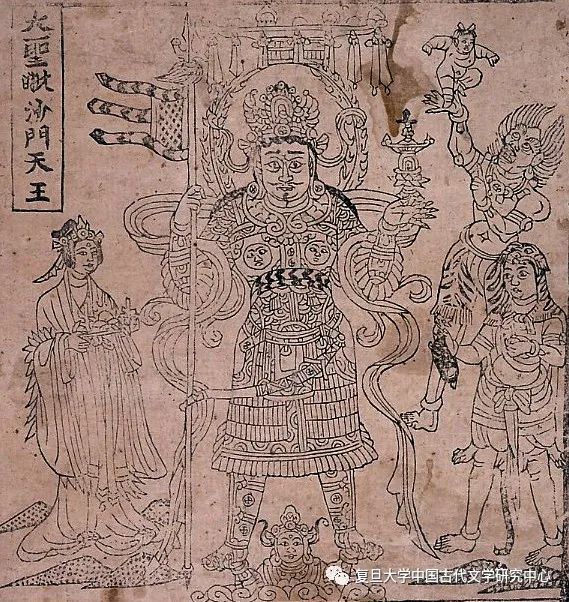 大聖毗沙門天王
复旦大学中国古代文学研究中心